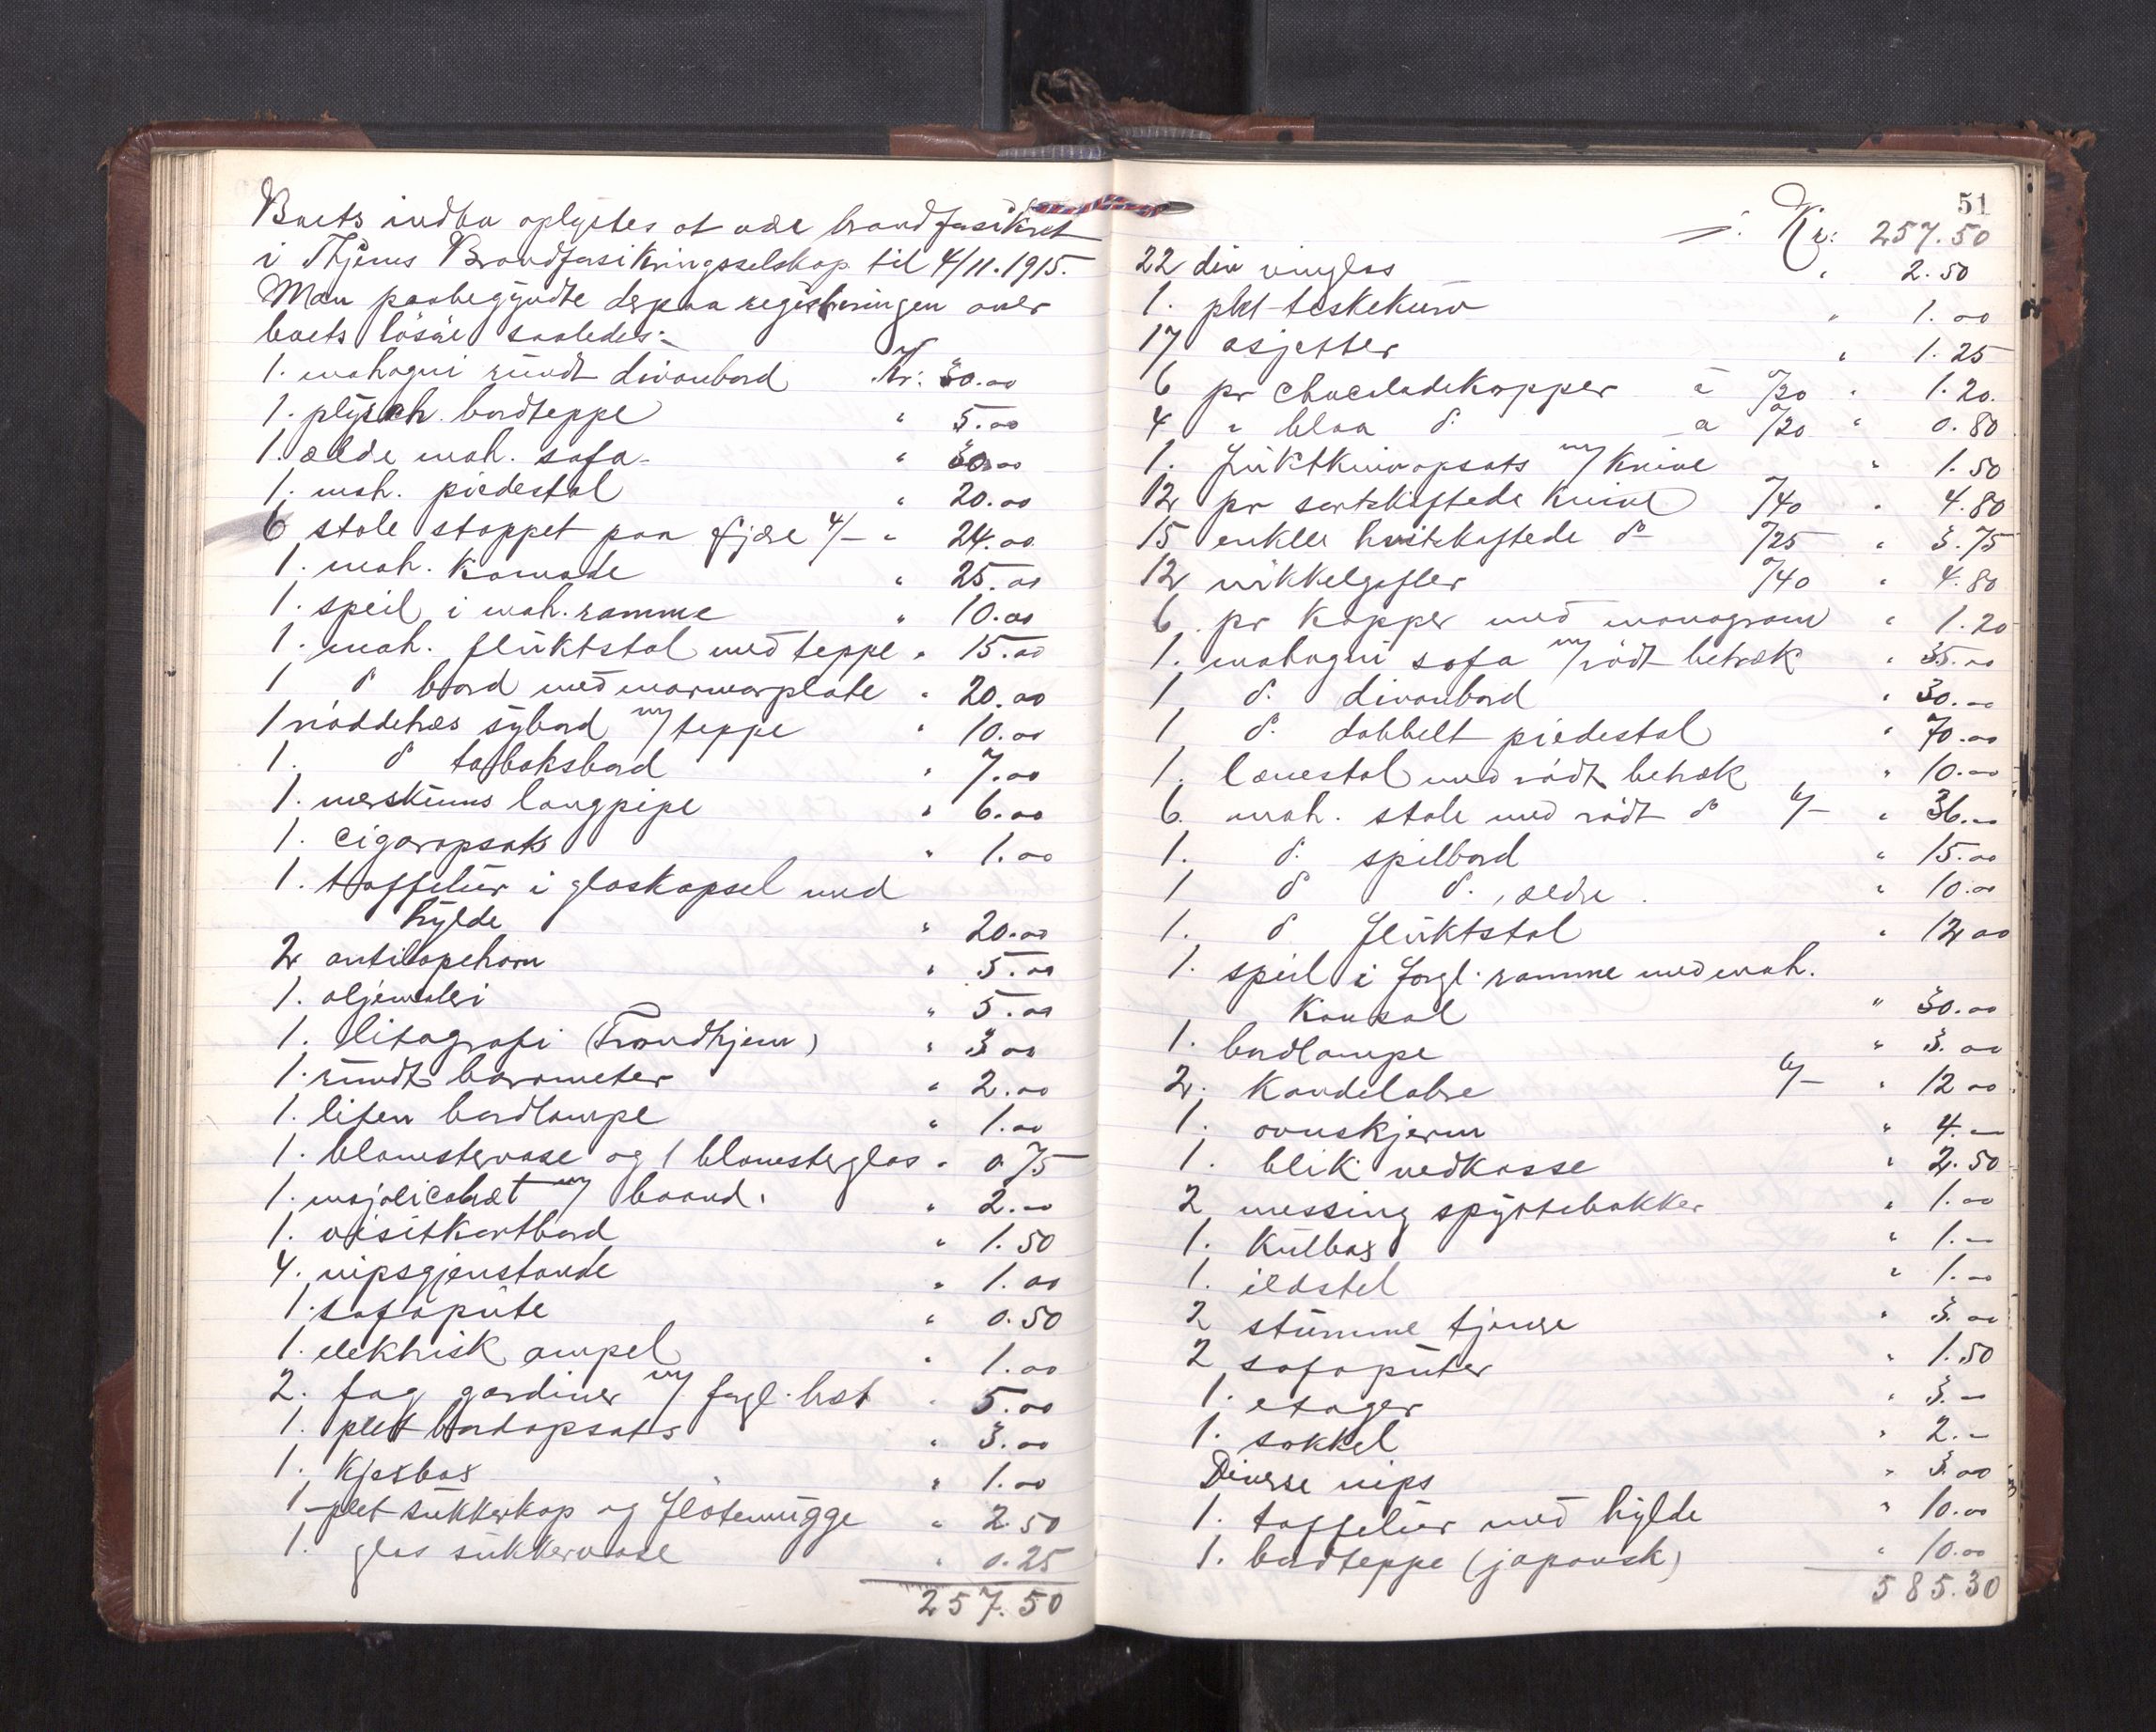 Boets indbo oplystes at være brandforsikret
i Thjems Brandforsikringsselskap til 4/11.1915.
Man paabegyndte derpaa registreringen over
boets lösöre saaledes:
1. mahogni rundt divanbord Kr: 30.00
1. plysch. bordteppe " 5.00
1. ældre mah. sofa " 30.00
1. mah. piedestal " 20.00
6 stole stoppet paa fjære 4/- " 24.00
1. mah. Komode " 25.00
1. speil i mah. ramme " 10.00
1. mah. flüktstol med teppe " 15.00
1 do bord med marmorplate " 20.00
1 nöddetræs sybord m/ teppe " 10.00
1. do tobaksbord " 7.00
1. merskums langpipe " 6.00
1. cigaropsats " 1.00
1. taffelur i glaskapsel med
hylde " 20.00
2 antilopehorn " 5.00
1. oljemaleri " 5.00
1. litografi (Trondhjem) " 3.00
1. rundt barometer " 2.00
1. liten bordlampe " 1.00
1. blomstervase og 1 blomsterglas " 0.75
1. majolicafat m/ baand. " 2.00
1. visitkortbord " 1.50
4. nipsgjenstande " 1.00
1. sofapute " 0.50
1. elektrisk ampel " 1.00
2. fag gardiner m/ forgl. list " 5.00
1. plet bordopsats " 3.00
1. Kjexbox " 1.00
1 plet sukkerkop og flötemugge " 2.50
1. glas sukkervase " 0.25
257.50
51
Kr: 257.50
22 div vinglas " 2.50
1. plet teskekurv " 1.00
17 asjetter " 1.25
6 pr chocoladekopper à "/20 " 1.20.
4 " blaa do a "/20 " 0.80
1. früktknivopsats m/ Knive " 1.50
12 pr sortskaftede Knive "/40 " 4.80
15 enkle hvitskaftede do "/25 " 3.75
12 nikkelgafler "/40 " 4.80
6 pr Kopper med monogram " 1.20
1. mahogni sofa m/ rödt betræk " 35.00
1 do divanbord " 30.00
1 do dobbelt piedestal " 70.00
1. lænestol med rödt betræk " 10.00
6. mah. stole med rödt do 6/- " 36.00
1. do spilbord " 15.00
1 do do, ældre. " 10.00
1. do flüktstol " 12.00
1. speil i forgl. ramme med mah.
Konsol " 30.00
1. bordlampe " 3.00
2. Kandelabre 6/- " 12.00
1. ovnskjerm " 4.—
1. blik vedkasse " 2.50
2 messing spyttebakker " 1.00
1. Kulbox " 1.—
1. ildstel " 1.00
2 stumme tjenere " 3.00
2 sofaputer " 1.50
1. etager " 3.—
1. sokkel " 2.—
Diverse nips " 3.00
1. taffelur med hylde " 10.00
1. bordteppe (japansk) " 10.00
585.30